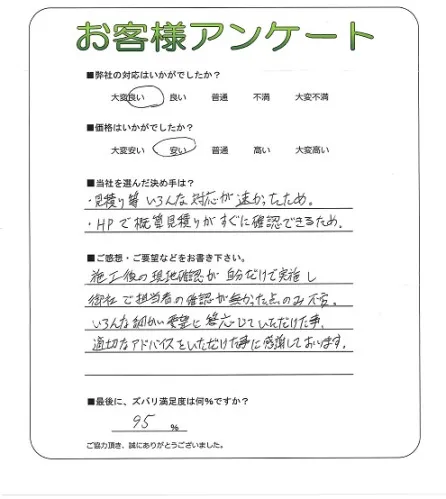 お客様アンケート
■弊社の対応はいかがでしたか?
大変良い 良い 普通 不満 大変不満
■価格はいかがでしたか?
大変安い 安い 普通 高い 大変高い
■当社を選んだ決め手は?
・見積り等いろんな対応が速かったため。
・HPで概算見積りがすぐに確認できるため。
■ご感想・ご要望などをお書き下さい。
施工後の現地確認が自分だけで実施し
御社で担当者の確認が無かった点のみ不安。
いろんな細かい要望に答応じていただけた事、
適切なアドバイスをいただけた事に感謝しております。
■最後に、ズバリ満足度は何%ですか?
95 %
ご協力頂き、誠にありがとうございました。